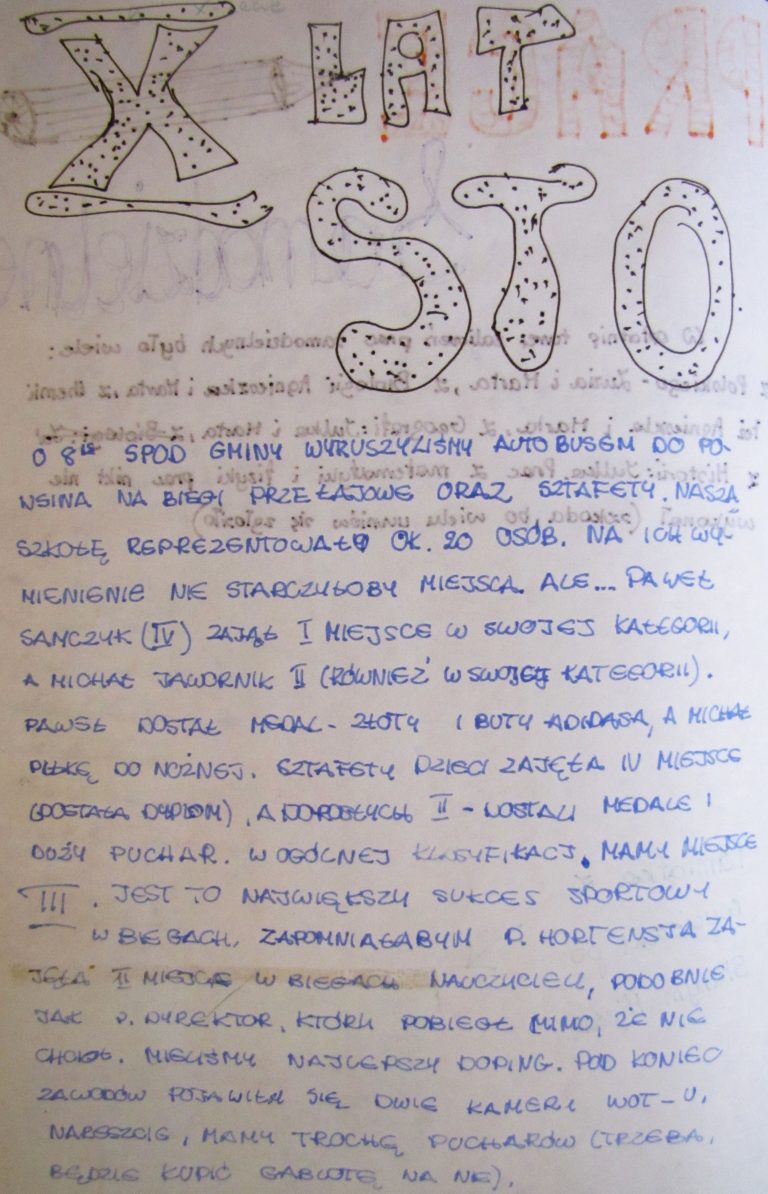 X LAT
STO
O 8¹⁵ SPOD GMINY WYRUSZYLIŚMY AUTOBUSEM DO PO-
WSINA NA BIEGI PRZEŁAJOWE ORAZ SZTAFETY. NASZĄ
SZKOŁĘ REPREZENTOWAŁO OK. 20 OSÓB. NA ICH WY-
MIENIENIE NIE STARCZYŁOBY MIEJSCA. ALE... PAWEŁ
SAŃCZYK (IV) ZAJĄŁ I MIEJSCE W SWOJEJ KATEGORII,
A MICHAŁ JAWORNIK II (RÓWNIEŻ W SWOJEJ KATEGORII).
PAWEŁ DOSTAŁ MEDAL - ZŁOTY I BUTY ADIDASA, A MICHAŁ
PIŁKĘ DO NOŻNEJ. SZTAFETY DZIECI ZAJĘŁA IV MIEJSCE
(DOSTAŁA DYPLOM), A DOROSŁYCH II - DOSTALI MEDALE I
DUŻY PUCHAR. W OGÓLNEJ KLASYFIKACJI MAMY MIEJSCE
III. JEST TO NAJWIĘKSZY SUKCES SPORTOWY
W BIEGACH, ZAPOMNIAŁABYM P. HORTENSJA ZA-
JĘŁA II MIEJSCE W BIEGACH NAUCZYCIELI, PODOBNIE
JAK P. DYREKTOR, KTÓRY POBIEGŁ MIMO, ŻE NIE
CHCIAŁ. MIELIŚMY NAJLEPSZY DOPING. POD KONIEC
ZAWODÓW POJAWIŁY SIĘ DWIE KAMERY WOT-U.
NARESZCIE, MAMY TROCHĘ PUCHARÓW (TRZEBA
BĘDZIE KUPIĆ GABLOTĘ NA NIE).